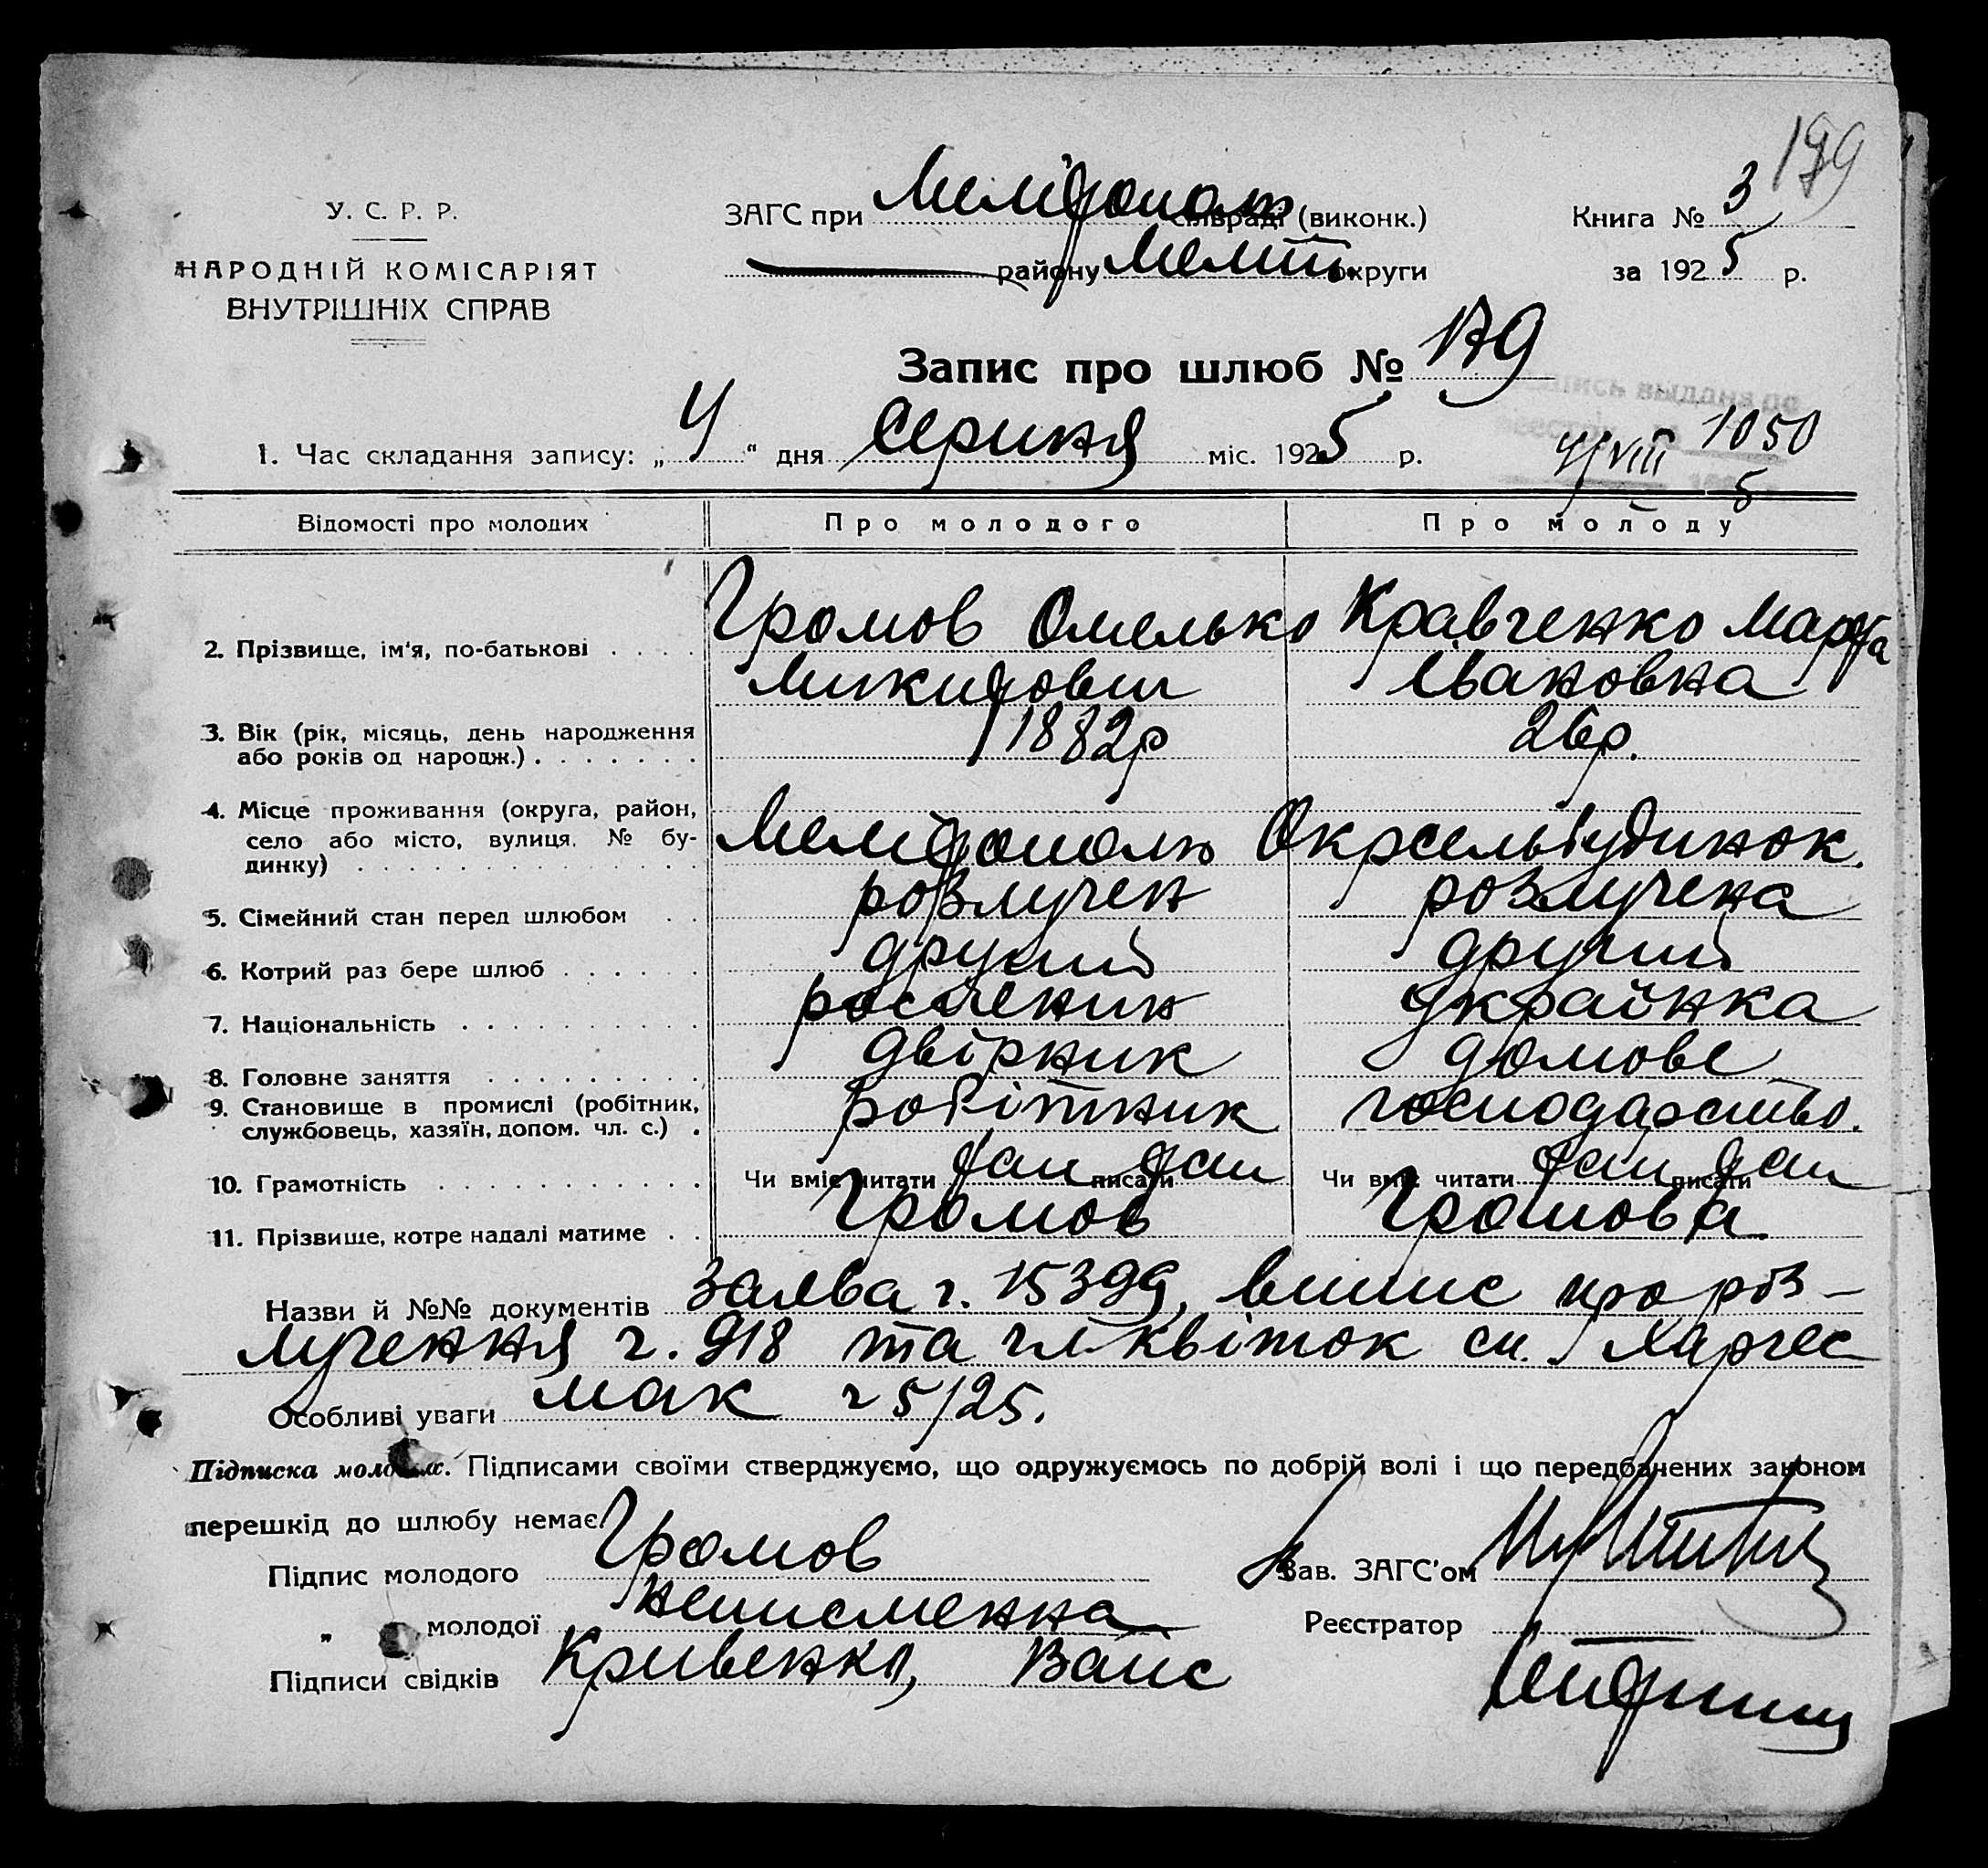 179
У. С. Р. Р.
НАРОДНІЙ КОМІСАРІЯТ
ВНУТРІШНІХ СПРАВ
ЗАГС при Мелітополь сільраді (виконк.)
району Меліт. округи
Книга № 3
за 1925 р.
Запис про шлюб № 179
1. Час складання запису: „4“ дня Серпня міс. 1925 р.
4/VIII 1050
5
Відомості про молодих Про молодого Про молоду
2. Прізвище, ім'я, по-батькові . . . . Громов Омелько Микитович Кравченко Марфа Івановна
3. Вік (рік, місяць, день народження або років од народж.) . . . . . . . 1882р 26р.
4. Місце проживання (округа, район, село або місто, вулиця, № будинку) . . . . Мелітополь Окрсельбудинок.
5. Сімейний стан перед шлюбом . . розлучен розлучена
6. Котрий раз бере шлюб . . . . . . другий другий
7. Національність . . . . . . . . . . росіенин українка
8. Головне заняття . . . . . . . . . двірник домове
9. Становище в промислі (робітник, службовець, хазяїн, допом. чл. с.) . робітник господарство.
10. Грамотність . . . . . . . . . . . Чи вміє читати так писати так Чи вміє читати так писати так
11. Прізвище, котре надалі матиме . . Громов Громова
Назви й №№ документів заява ч. 15399, випис про роз-
лучення ч. 918 та чл квіток сп. Харчсмак
Особливі уваги ч 5/25.
Підписка молодих. Підписами своїми стверджуємо, що одружуємось по добрій волі і що передбачених законом
перешкід до шлюбу немає.
Підпис молодого Громов
„ молодої неписменна
Підписи свідків Кривенко, Вайс
Зав. ЗАГС'ом
Реєстратор